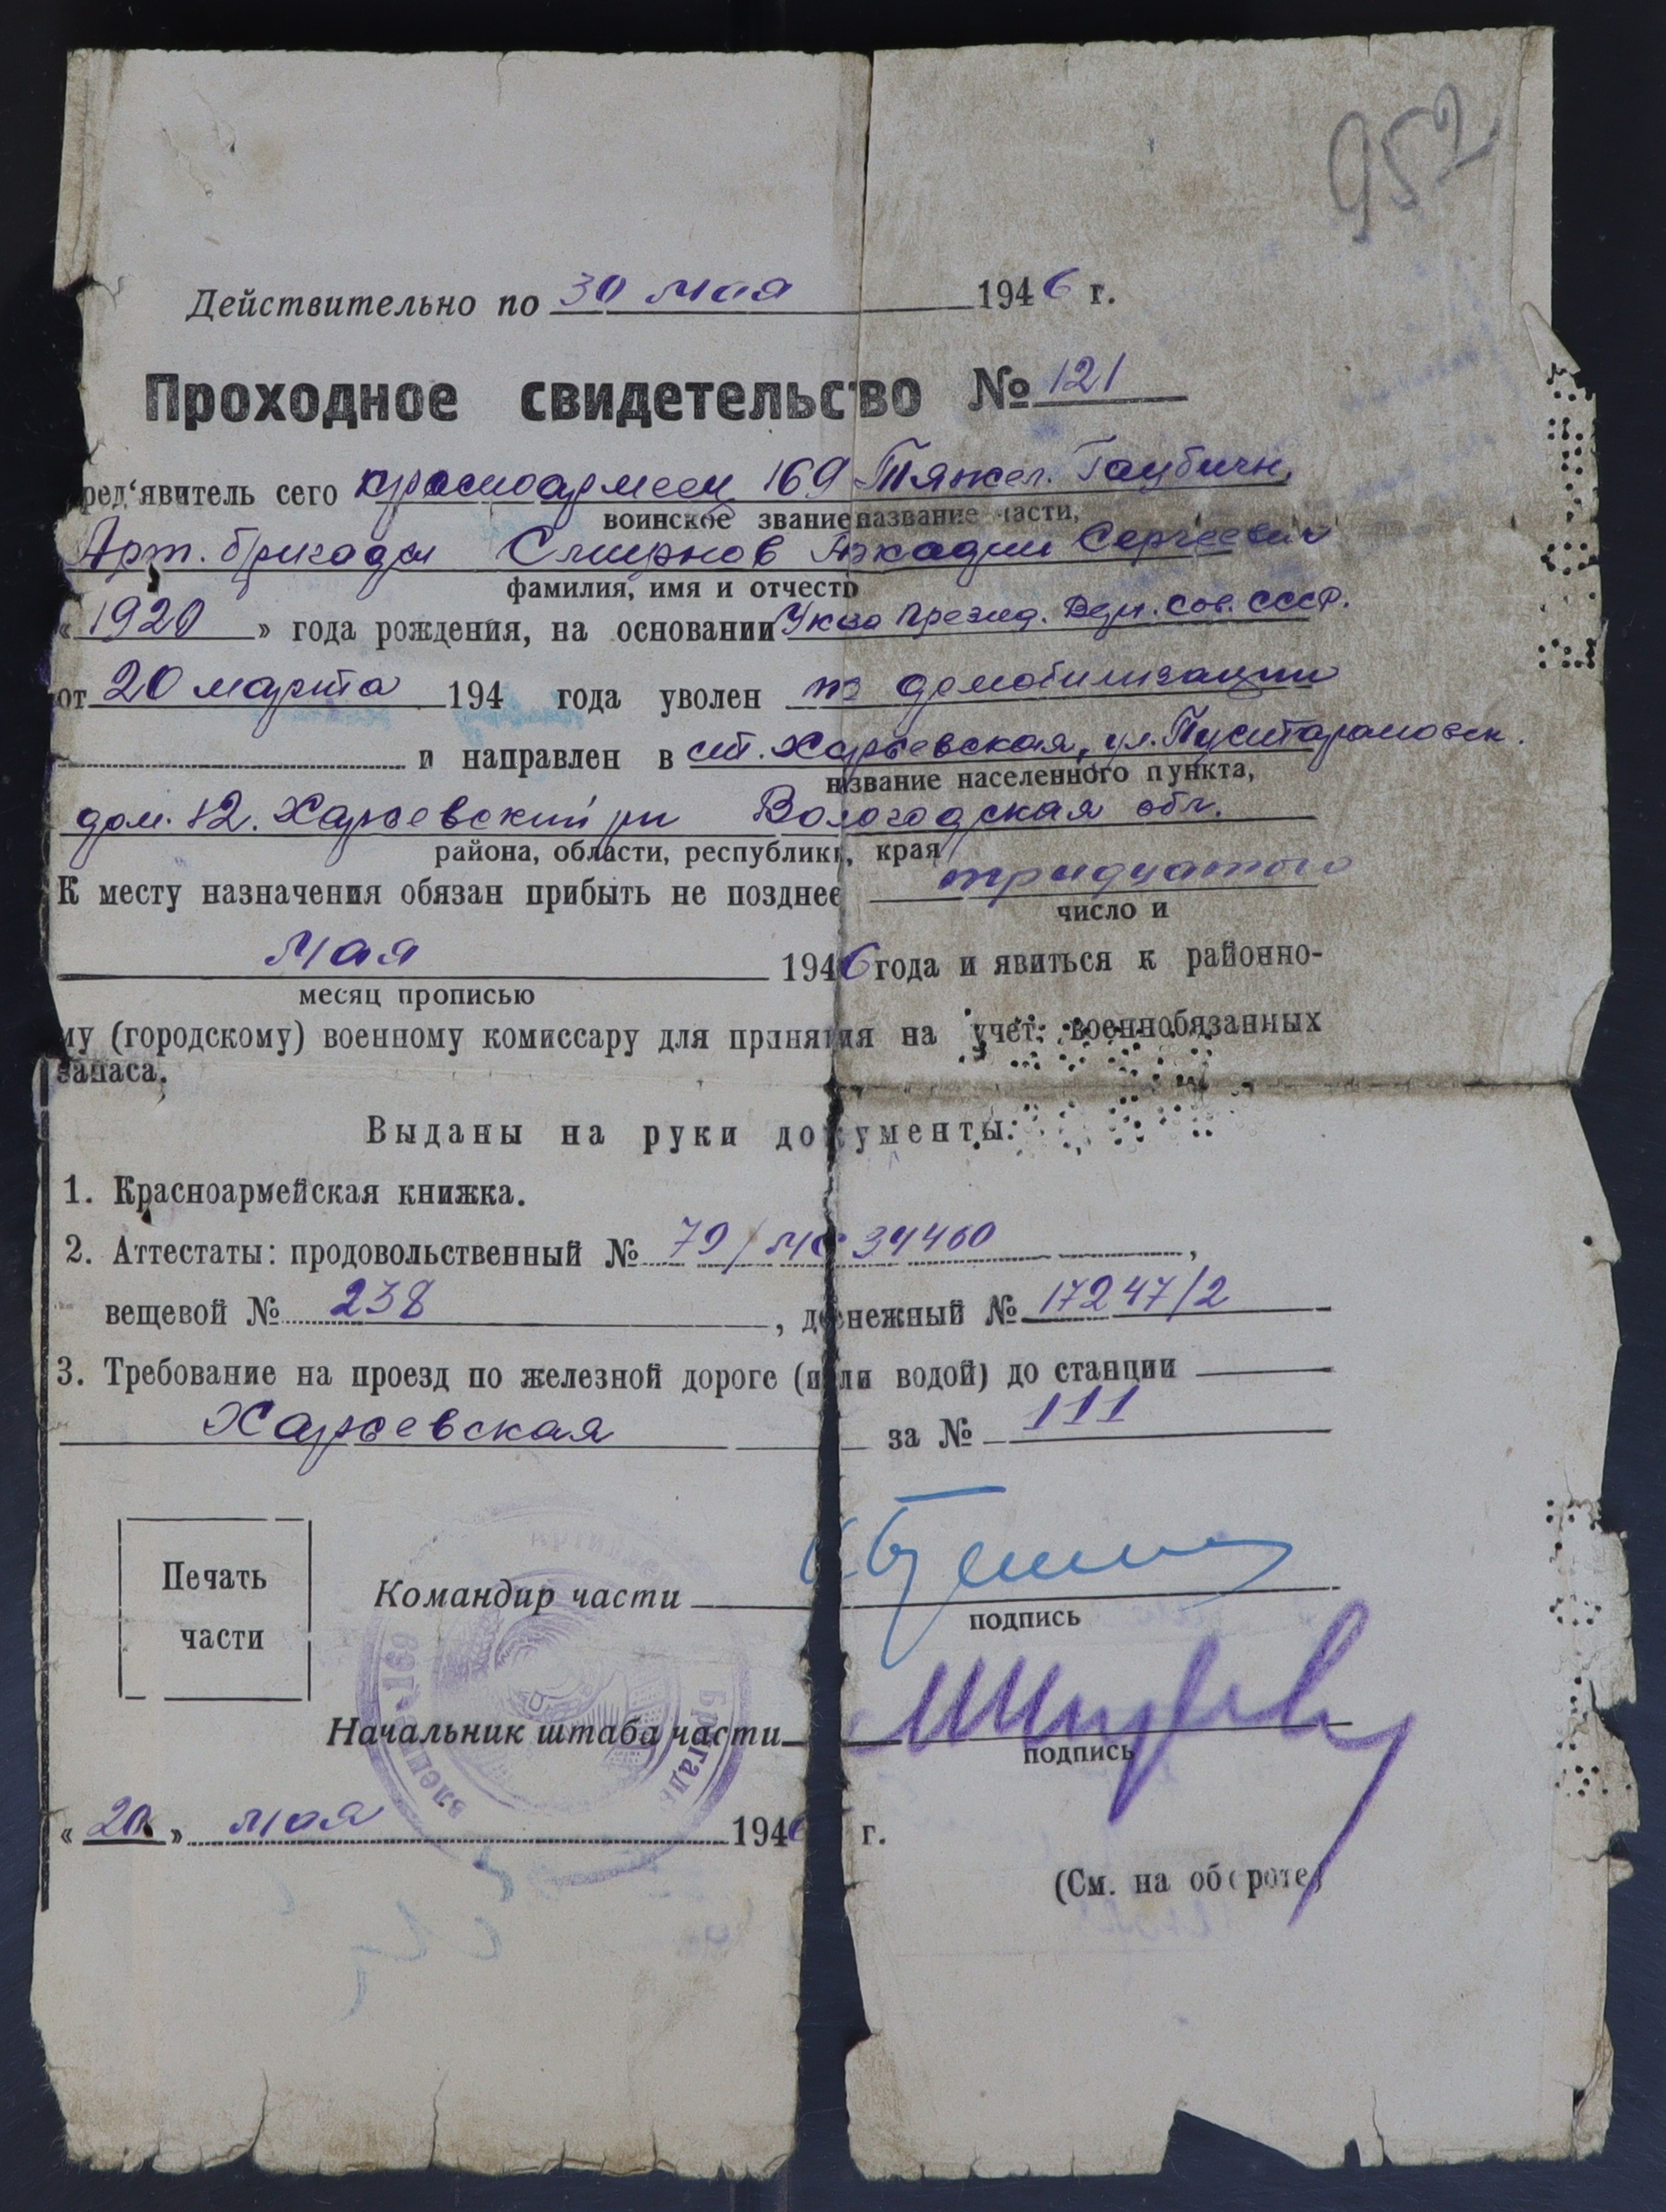 952
Действительно по 30 мая 1946 г.
Проходное свидетельство № 121
ред'явитель сего красноармеец 169 Тяжел. Гаубичн.
воинское звание название части,
Арт. бригады Смирнов Аркадий Сергеевич
фамилия, имя и отчество
« 1920 » года рождения, на основании Указа Презид. Верх. Сов. СССР.
от 20 марта 194 года уволен по демобилизации
и направлен в ст. Харьевская, ул.
название населенного пункта,
дом. 12. Харьевский рн Вологодская обл.
района, области, республики, края
К месту назначения обязан прибыть не позднее тридцатого
число и
мая 1946 года и явиться к районно-
му (городскому) военному комиссару для принятия на учет военнобязанных
запаса.
Выданы на руки документы:
1. Красноармейская книжка.
2. Аттестаты: продовольственный № 79/МС 34460,
вещевой № 238, денежный № 17247/2
3. Требование на проезд по железной дороге (или водой) до станции
Харьевская за № 111
Печать
части
Командир части
подпись
Начальник штаба части
подпись
« » мая 1946 г.
(См. на обороте)